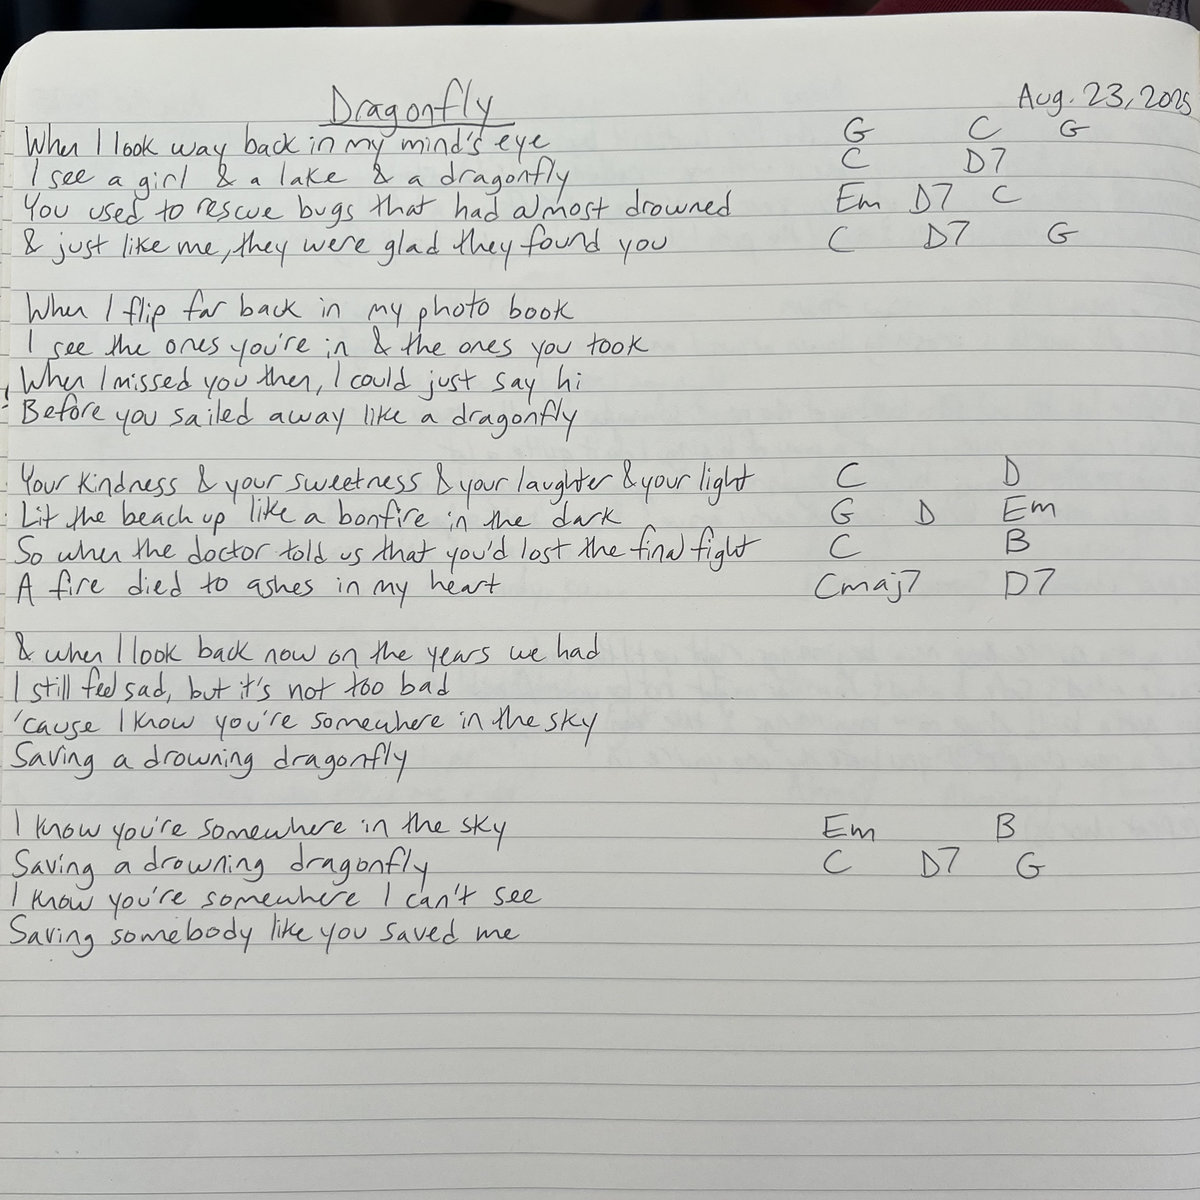 Dragonfly Aug. 23, 2025
When I look way back in my mind's eye G C G
I see a girl & a lake & a dragonfly C D7
You used to rescue bugs that had almost drowned Em D7 C
& just like me, they were glad they found you C D7 G
When I flip far back in my photo book
I see the ones you're in & the ones you took
When I missed you then, I could just say hi
Before you sailed away like a dragonfly
Your kindness & your sweetness & your laughter & your light C D
Lit the beach up like a bonfire in the dark G D Em
So when the doctor told us that you'd lost the final fight C B
A fire died to ashes in my heart Cmaj7 D7
& when I look back now on the years we had
I still feel sad, but it's not too bad
'cause I know you're somewhere in the sky
Saving a drowning dragonfly
I know you're somewhere in the sky Em B
Saving a drowning dragonfly C D7 G
I know you're somewhere I can't see
Saving somebody like you saved me